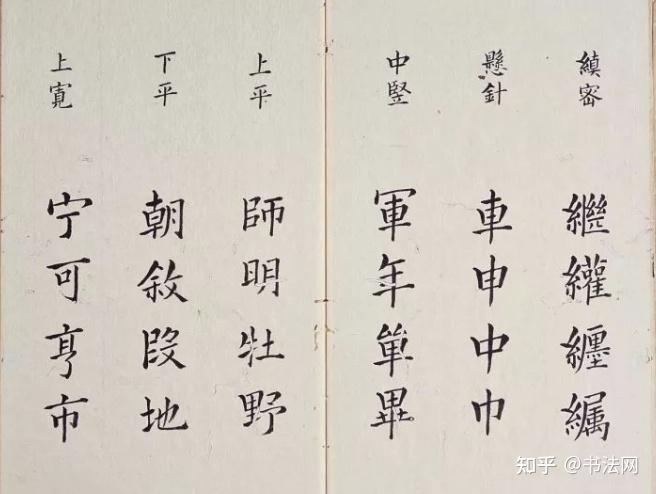 縝密
繼 纏
懸針
車申中巾
中豎
軍年單畢
上平
師明牡野
下平
朝敘段地
上寬
宁可亨市
知乎 @书法网